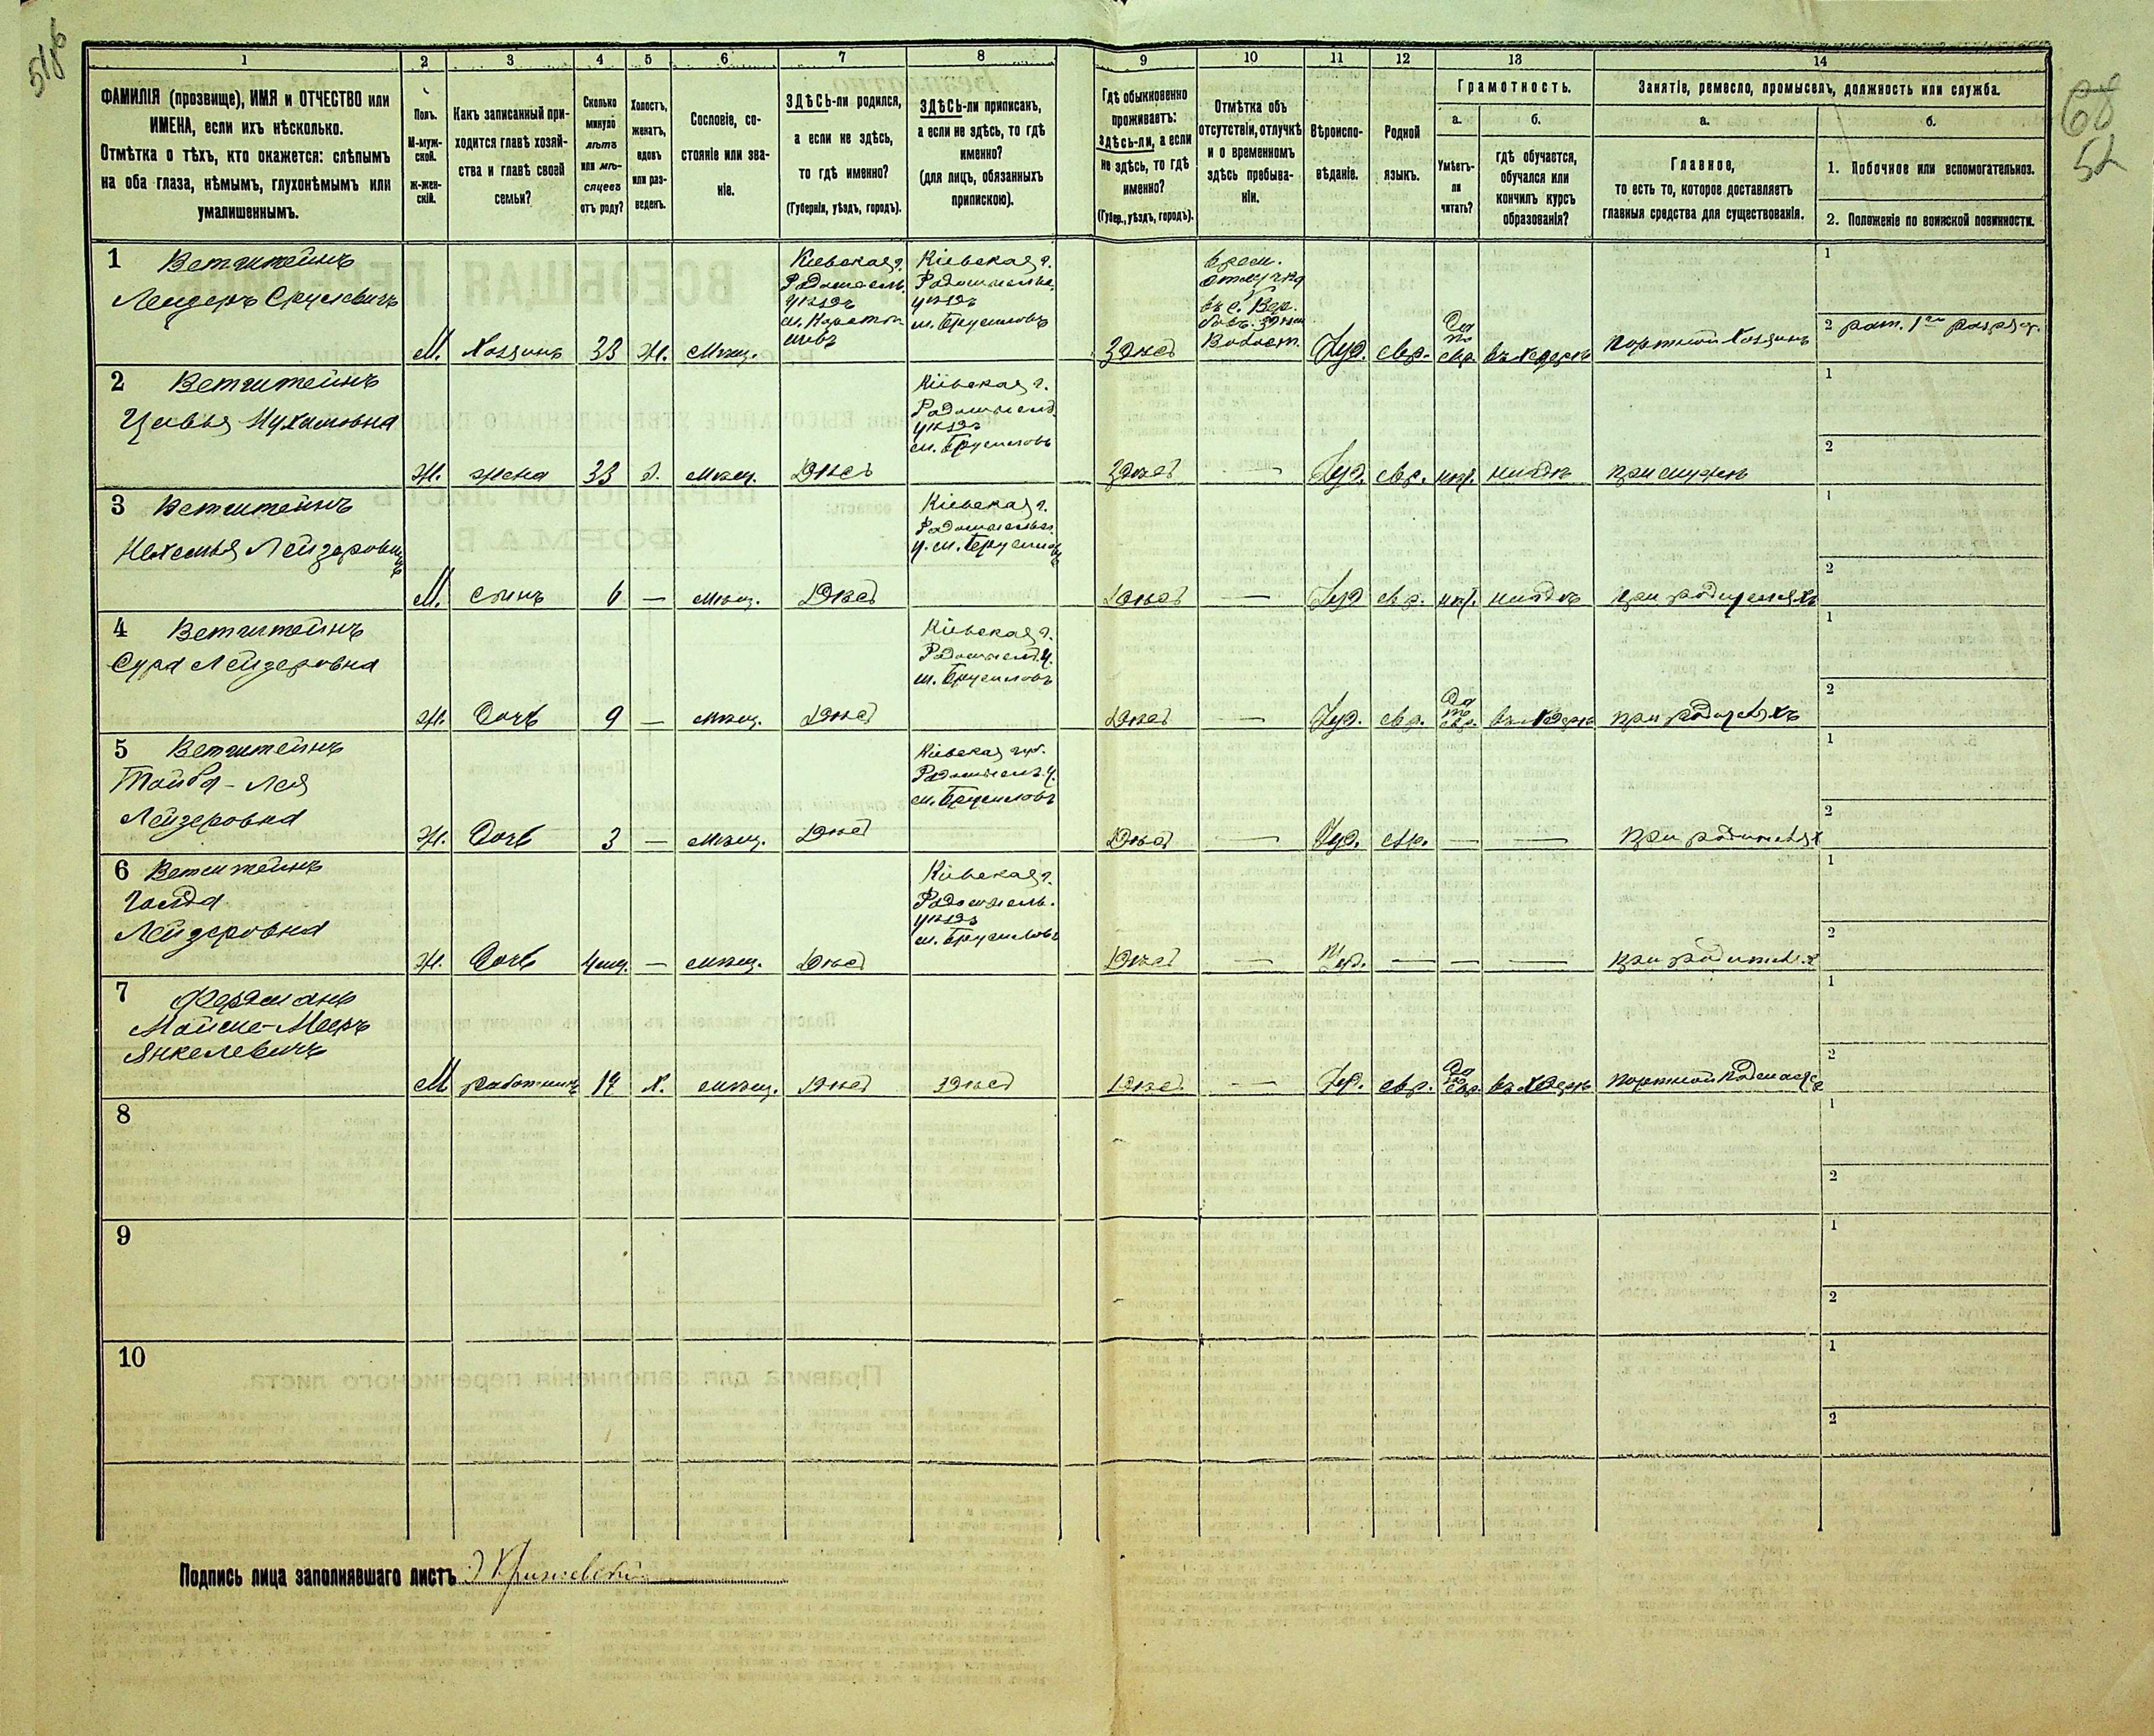 51об
68
52
1
2
3
4
5
6
7
8
9
10
11
12
13
14
ФАМИЛІЯ (прозвище), ИМЯ и ОТЧЕСТВО или
ИМЕНА, если ихъ нѣсколько.
Отмѣтка о тѣхъ, кто окажется: слѣпымъ
на оба глаза, нѣмымъ, глухонѣмымъ или
умалишеннымъ.
Полъ.
М-муж-
ской.
Ж-жен-
скій.
Какъ записанный при-
ходится главѣ хозяй-
ства и главѣ своей
семьи?
Сколько
минуло
лѣтъ
или мѣ-
сяцевъ
отъ роду?
Холостъ,
женатъ,
вдовъ
или раз-
веденъ.
Сословіе, со-
стояніе или зва-
ніе.
ЗДѢСЬ-ли родился,
а если не здѣсь,
то гдѣ именно?
(Губернія, уѣздъ, городъ).
ЗДѢСЬ-ли приписанъ,
а если не здѣсь, то гдѣ
именно?
(для лицъ, обязанныхъ
припискою).
Гдѣ обыкновенно
проживаетъ:
здѣсь-ли, а если
не здѣсь, то гдѣ
именно?
(Губер., уѣздъ, городъ).
Отмѣтка объ
отсутствіи, отлучкѣ
и о временномъ
здѣсь пребыва-
ніи.
Вѣроиспо-
вѣданіе.
Родной
языкъ.
Грамотность.
а.
Умѣетъ-
ли
читать?
б.
гдѣ обучается,
обучался или
кончилъ курсъ
образованія?
Занятіе, ремесло, промыселъ, должность или служба.
а.
Главное,
то есть то, которое доставляетъ
главныя средства для существованія.
б.
1. Побочное или вспомогательное.
2. Положеніе по воинской повинности.
1 Ветштейнъ
Лейзеръ Срулевичъ
М. Хозяинъ 33 Ж. мѣщ.
Кіевская г.
Радомысль.
уѣздъ
Кіевская г.
Радомысльс.
уѣздъ
м. Брусиловъ
здѣсь
врем.
отлучка
въ с.
Іуд. евр.
Да
по
евр. въ хедерѣ портной хозяинъ
1
2 рат. 1го разряд.
2 Ветштейнъ
Цивья Нухимовна
Ж. жена 33 З. мѣщ. здѣсь
Кіевская г.
Радомысль.
уѣздъ
м. Брусиловъ
здѣсь — Іуд. евр. нѣт. нигдѣ при мужѣ
1
2
3 Ветштейнъ
Нехемья Лейзеровичъ
М. сынъ 6 — мѣщ. здѣсь
Кіевская г.
Радомысльс.
у. м. Брусиловъ
здѣсь — Іуд. евр. нѣт. нигдѣ при родителяхъ
1
2
4 Ветштейнъ
Сура Лейзеровна
Ж. дочь 9 — мѣщ. здѣсь
Кіевская г.
Радомысл. у.
м. Брусиловъ
здѣсь — Іуд. евр.
Да
по
евр. въ хедерѣ при родителяхъ
1
2
5 Ветштейнъ
Тойба-Лея
Лейзеровна
Ж. дочь 3 — мѣщ. здѣсь
Кіевская губ.
Радомысль. у.
м. Брусиловъ
здѣсь — Іуд. евр. — — при родителях
1
2
6 Ветштейнъ
Голда
Лейзеровна
Ж. дочь 4 мѣс. — мѣщ. здѣсь
Кіевская г.
Радомысль.
уѣздъ
м. Брусиловъ
здѣсь — Іуд. — — — при родителях
1
2
7 Фердманъ
Мойше-Мееръ
Янкелевичъ
М работникъ 17 Х. мѣщ. здѣсь здѣсь
здѣсь — Іуд. евр.
Да
по
евр. въ хедерѣ портной подмастер
1
2
8
1
2
9
1
2
10
1
2
Подпись лица заполнявшаго листъ